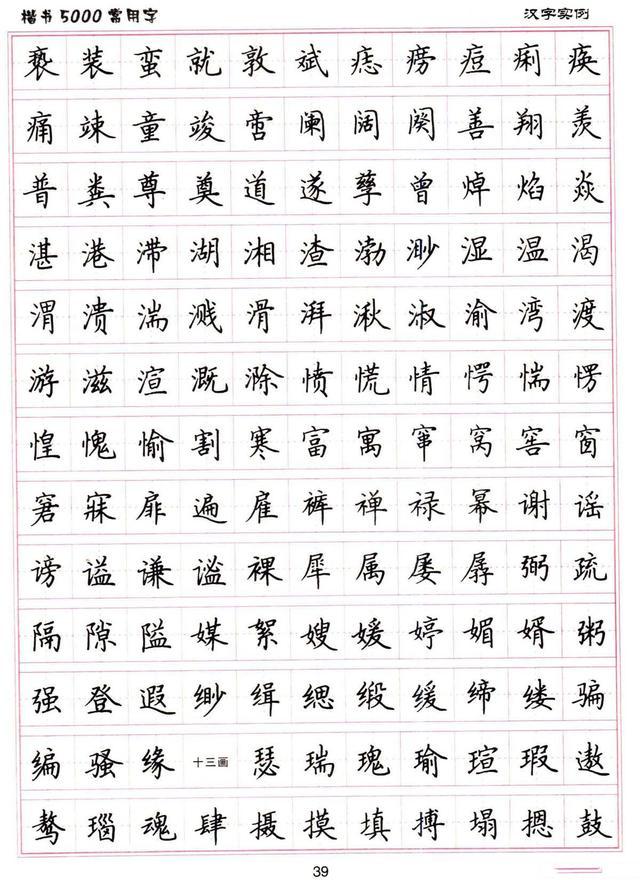 楷书5000常用字 汉字实例
亵 装 蛮 就 敦 斌 痣 痨 痘 痢 痪
痛 竦 童 竣 啻 阑 阔 阕 善 翔 羡
普 粪 尊 奠 道 遂 孳 曾 焯 焰 焱
湛 港 滞 湖 湘 渣 渤 渺 湿 温 渴
渭 溃 湍 溅 滑 湃 湫 淑 渝 湾 渡
游 滋 渲 溉 滁 愤 慌 惰 愕 惴 愣
惶 愧 愉 割 寒 富 寓 窜 窝 窖 窗
窘 寐 扉 遍 雇 裤 禅 禄 幂 谢 谣
谤 谥 谦 谧 裸 犀 属 屡 孱 弼 疏
隔 隙 隘 媒 絮 嫂 媛 婷 媚 婿 粥
强 登 遐 缈 缉 缌 缎 缓 缔 缕 骗
编 骚 缘 十三画 瑟 瑞 瑰 瑜 瑄 瑕 遨
骜 瑙 魂 肆 摄 摸 填 搏 塌 摁 鼓
39